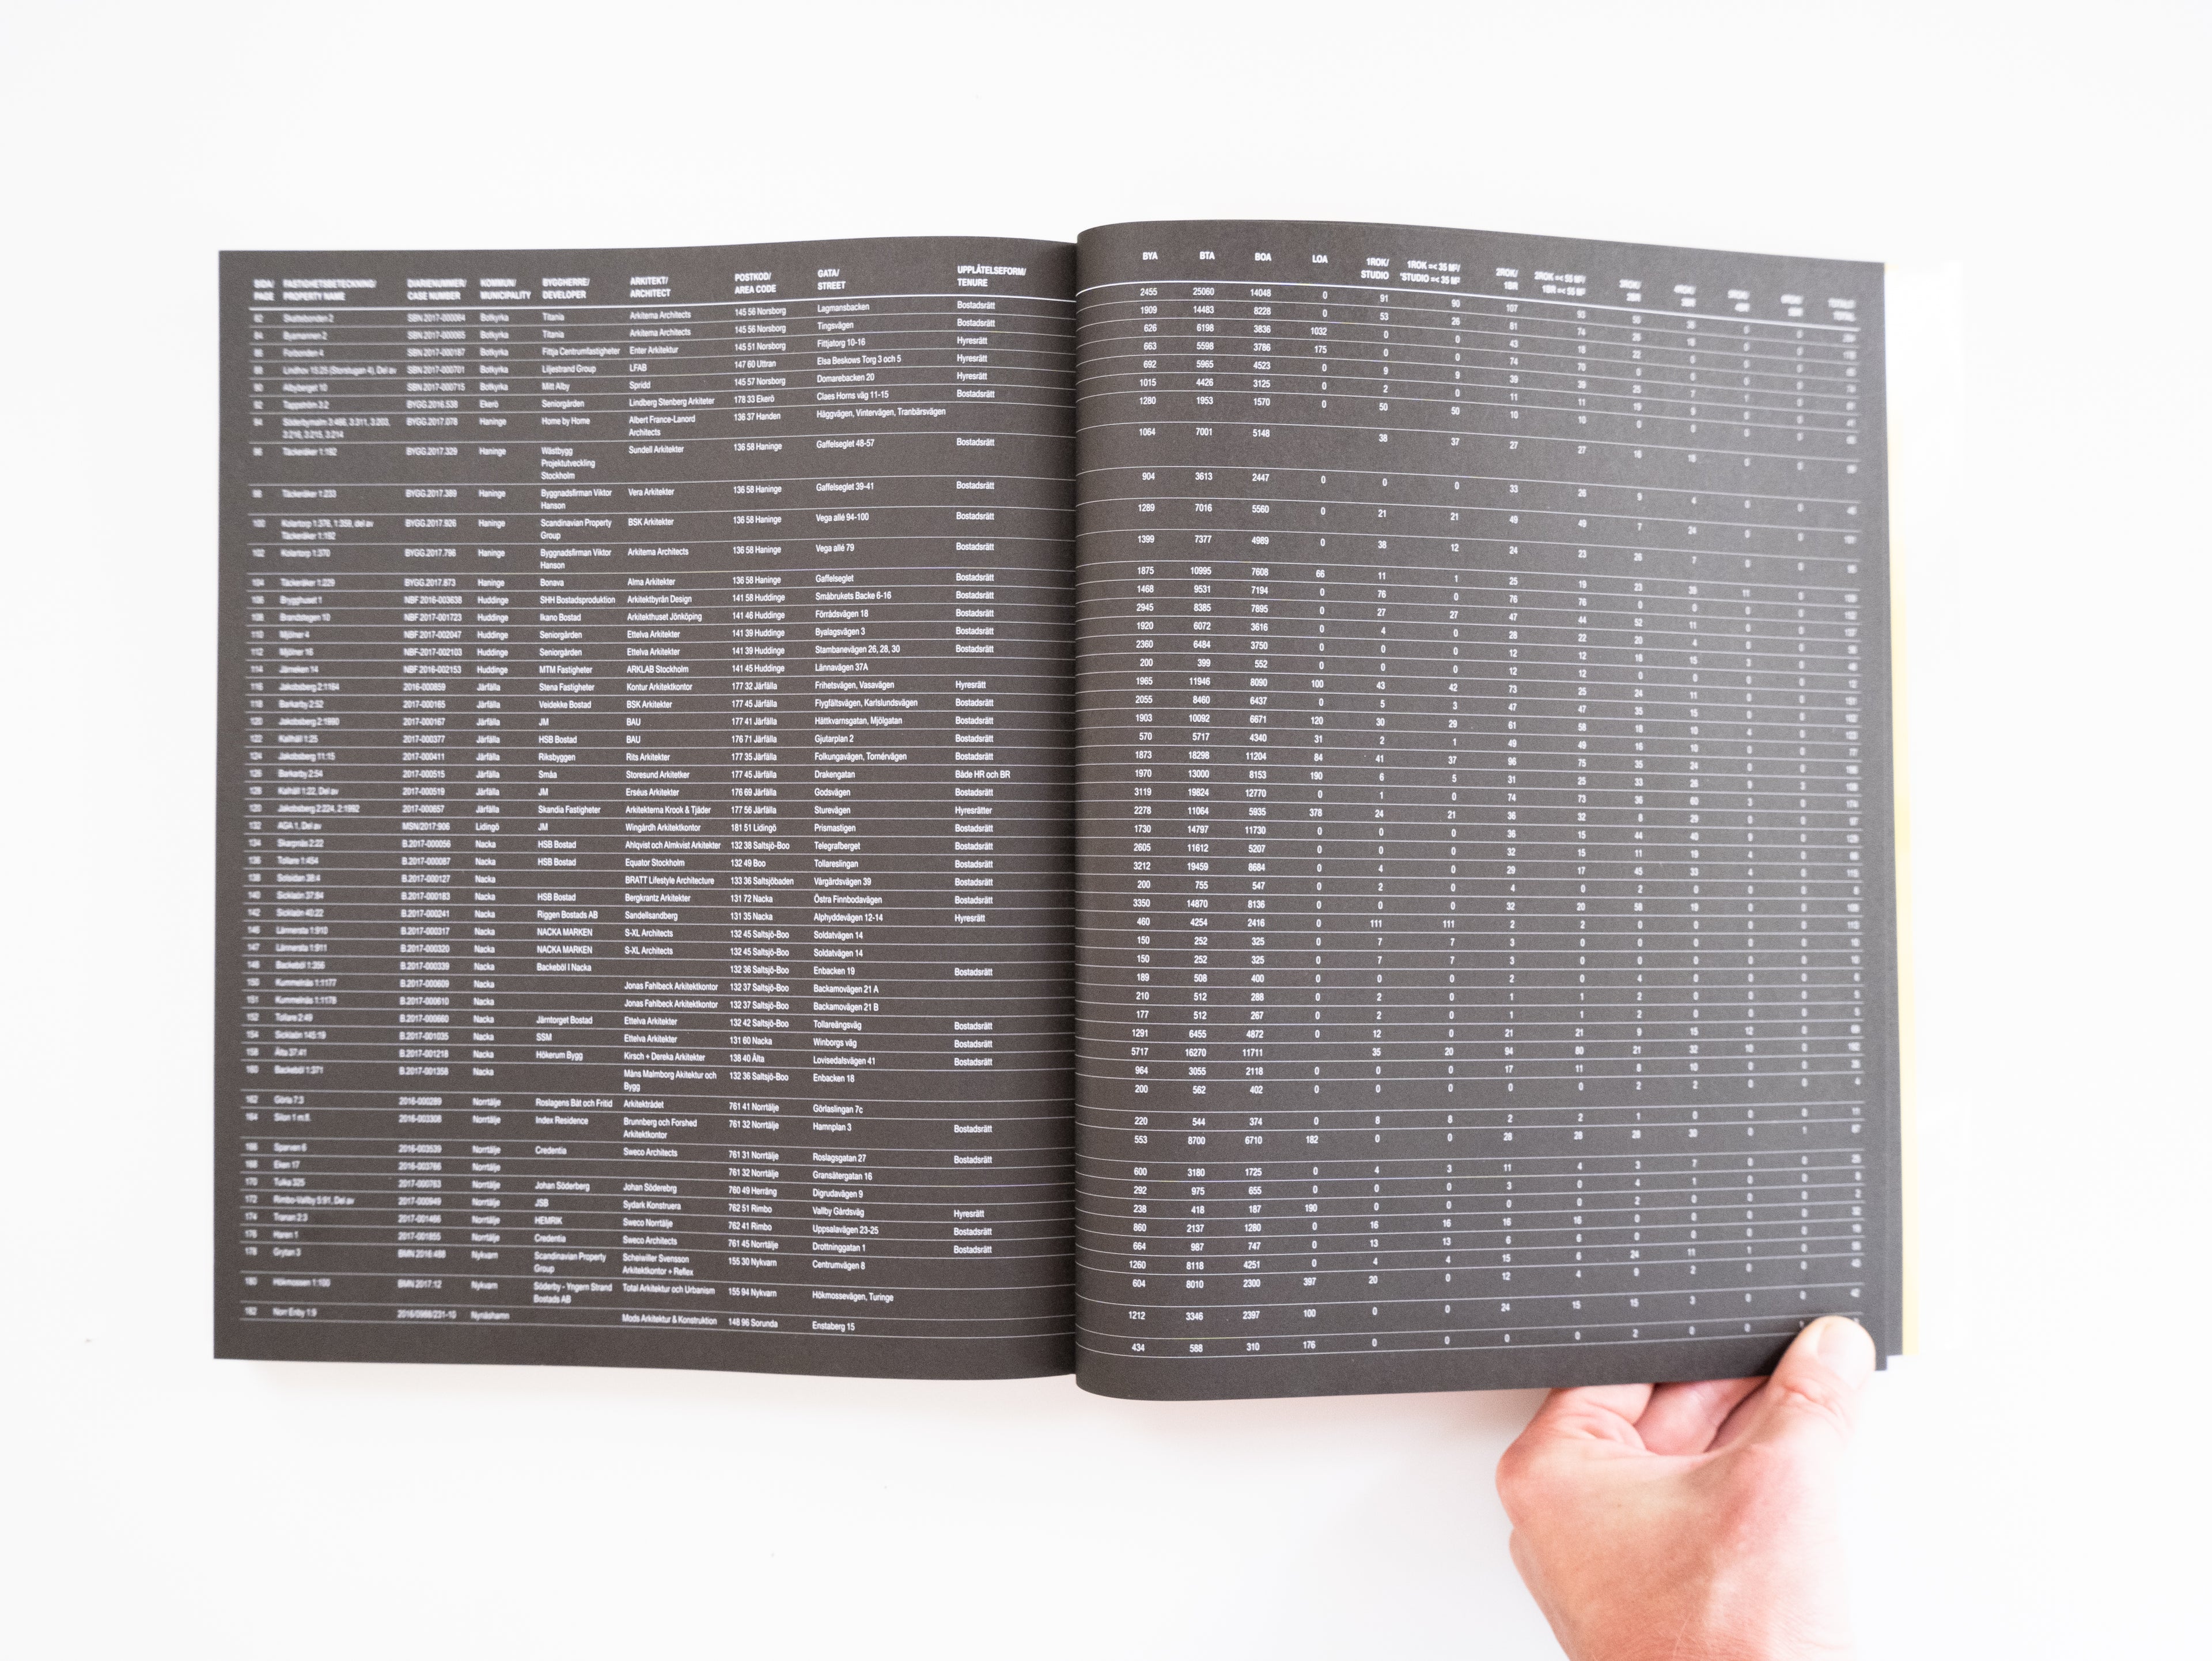 SIDA/ FASTIGHETSBETECKNING/ DIARIENUMMER/ KOMMUN/ BYGGHERRE/ ARKITEKT/ POSTKOD/ GATA/ UPPLÅTELSEFORM/
PAGE PROPERTY NAME CASE NUMBER MUNICIPALITY DEVELOPER ARCHITECT AREA CODE STREET TENURE
82 Skattebonden 2 SBN 2017-000064 Botkyrka Titania Arkitema Architects 145 56 Norsborg Lagmansbacken Bostadsrätt
84 Byamannen 2 SBN 2017-000065 Botkyrka Titania Arkitema Architects 145 56 Norsborg Tingsvägen Bostadsrätt
86 Forbonden 4 SBN 2017-000187 Botkyrka Fittja Centrumfastigheter Enter Arkitektur 145 51 Norsborg Fittjatorg 10-16 Hyresrätt
88 Lindhov 15:25 (Storstugan 4), Del av SBN 2017-000701 Botkyrka Liljestrand Group LFAB 147 60 Uttran Elsa Beskows Torg 3 och 5
90 Albyberget 10 SBN 2017-000715 Botkyrka Mitt Alby Spridd 145 57 Norsborg Domarebacken 20 Hyresrätt
92 Tappström 3:2 BYGG.2016.538 Ekerö Seniorgården Lindberg Stenberg Arkiteter 178 33 Ekerö Claes Horns väg 11-15 Bostadsrätt
94 Söderbymalm 3:466, 3:311, 3:203, BYGG.2017.078 Haninge Home by Home Albert France-Lanord 136 37 Handen Häggvägen, Vintervägen, Tranbärsvägen
3:216, 3:215, 3:214 Architects
96 Täckeråker 1:192 BYGG.2017.329 Haninge Wästbygg Sundell Arkitekter 136 58 Haninge Gaffelseglet 48-57 Bostadsrätt
Projektutveckling
Stockholm
98 Täckeråker 1:233 BYGG.2017.389 Haninge Byggnadsfirman Viktor Vera Arkitekter 136 58 Haninge Gaffelseglet 39-41 Bostadsrätt
Hanson
100 Kolartorp 1:376, 1:359, del av BYGG.2017.926 Haninge Scandinavian Property BSK Arkitekter 136 58 Haninge Vega allé 94-100 Bostadsrätt
Täckeråker 1:192 Group
102 Kolartorp 1:370 BYGG.2017.796 Haninge Byggnadsfirman Viktor Arkitema Architects 136 58 Haninge Vega allé 79 Bostadsrätt
Hanson
104 Täckeråker 1:229 BYGG.2017.673 Haninge Bonava Alma Arkitekter 136 58 Haninge Gaffelseglet Bostadsrätt
106 Brygghuset 1 NBF 2016-003638 Huddinge SHH Bostadsproduktion Arkitektbyrån Design 141 58 Huddinge Småbrukets Backe 6-16 Bostadsrätt
108 Brandstegen 10 NBF 2017-001723 Huddinge Ikano Bostad Arkitekthuset Jönköping 141 46 Huddinge Förrådsvägen 18 Bostadsrätt
110 Mjölner 4 NBF 2017-002047 Huddinge Seniorgården Ettelva Arkitekter 141 39 Huddinge Byalagsvägen 3 Bostadsrätt
112 Mjölner 16 NBF-2017-002103 Huddinge Seniorgården Ettelva Arkitekter 141 39 Huddinge Stambanevägen 26, 28, 30 Bostadsrätt
114 Järneken 14 NBF 2016-002153 Huddinge MTM Fastigheter ARKLAB Stockholm 141 45 Huddinge Lännavägen 37A
116 Jakobsberg 2:1164 2016-000859 Järfälla Stena Fastigheter Kontur Arkitektkontor 177 32 Järfälla Frihetsvägen, Vasavägen Hyresrätt
118 Barkarby 2:52 2017-000165 Järfälla Veidekke Bostad BSK Arkitekter 177 45 Järfälla Flygfältsvägen, Karlslundsvägen Bostadsrätt
120 Jakobsberg 2:1980 2017-000167 Järfälla JM BAU 177 41 Järfälla Hättkvarnsgatan, Mjölgatan Bostadsrätt
122 Kallhäll 1:25 2017-000377 Järfälla HSB Bostad BAU 176 71 Järfälla Gjutarplan 2 Bostadsrätt
124 Jakobsberg 11:15 2017-000411 Järfälla Riksbyggen Rits Arkitekter 177 35 Järfälla Folkungavägen, Tornérvägen Bostadsrätt
126 Barkarby 2:54 2017-000515 Järfälla Småa Storesund Arkitetker 177 45 Järfälla Drakengatan Både HR och BR
128 Kallhäll 1:22, Del av 2017-000519 Järfälla JM Erséus Arkitekter 176 69 Järfälla Godsvägen Bostadsrätt
120 Jakobsberg 2:224, 2:1992 2017-000657 Järfälla Skandia Fastigheter Arkitekterna Krook & Tjäder 177 56 Järfälla Sturevägen Hyresrätter
132 AGA 1, Del av MSN/2017:906 Lidingö JM Wingårdh Arkitektkontor 181 51 Lidingö Prismastigen Bostadsrätt
134 Skarpnäs 2:22 B.2017-000056 Nacka HSB Bostad Ahlqvist och Almkvist Arkitekter 132 38 Saltsjö-Boo Telegrafberget Bostadsrätt
136 Tollare 1:454 B.2017-000087 Nacka HSB Bostad Equator Stockholm 132 49 Boo Tollareslingan Bostadsrätt
138 Solsidan 38:4 B.2017-000127 Nacka BRATT Lifestyle Architecture 133 36 Saltsjöbaden Vårgårdsvägen 39 Bostadsrätt
140 Sicklaön 37:84 B.2017-000183 Nacka HSB Bostad Bergkrantz Arkitekter 131 72 Nacka Östra Finnbodavägen Bostadsrätt
142 Sicklaön 40:22 B.2017-000241 Nacka Riggen Bostads AB Sandellsandberg 131 35 Nacka Alphyddevägen 12-14 Hyresrätt
146 Lännersta 1:910 B.2017-000317 Nacka NACKA MARKEN S-XL Architects 132 45 Saltsjö-Boo Soldatvägen 14
147 Lännersta 1:911 B.2017-000320 Nacka NACKA MARKEN S-XL Architects 132 45 Saltsjö-Boo Soldatvägen 14
148 Backeböl 1:356 B.2017-000339 Nacka Backeböl I Nacka 132 36 Saltsjö-Boo Enbacken 19 Bostadsrätt
150 Kummelnäs 1:1177 B.2017-000609 Nacka Jonas Fahlbeck Arkitektkontor 132 37 Saltsjö-Boo Backamovägen 21 A
151 Kummelnäs 1:1178 B.2017-000610 Nacka Jonas Fahlbeck Arkitektkontor 132 37 Saltsjö-Boo Backamovägen 21 B
152 Tollare 2:49 B.2017-000660 Nacka Järntorget Bostad Ettelva Arkitekter 132 42 Saltsjö-Boo Tollareängsväg Bostadsrätt
154 Sicklaön 145:19 B.2017-001035 Nacka SSM Ettelva Arkitekter 131 60 Nacka Winborgs väg Bostadsrätt
158 Älta 37:41 B.2017-001218 Nacka Hökerum Bygg Kirsch + Dereka Arkitekter 138 40 Älta Lovisedalsvägen 41 Bostadsrätt
160 Backeböl 1:371 B.2017-001358 Nacka Måns Malmborg Akitektur och 132 36 Saltsjö-Boo Enbacken 18
Bygg
162 Görla 7:3 2016-000289 Norrtälje Roslagens Båt och Fritid Arkitektrådet 761 41 Norrtälje Görlaslingan 7c
164 Silon 1 m.fl. 2016-003308 Norrtälje Index Residence Brunnberg och Forshed 761 32 Norrtälje Hamnplan 3 Bostadsrätt
Arkitektkontor
166 Sparven 6 2016-003539 Norrtälje Credentia Sweco Architects 761 31 Norrtälje Roslagsgatan 27 Bostadsrätt
168 Eken 17 2016-003766 Norrtälje 761 32 Norrtälje Gransätergatan 16
170 Tulka 325 2017-000763 Norrtälje Johan Söderberg Johan Söderebrg 760 49 Herräng Digrudavägen 9
172 Rimbo-Vallby 5:91, Del av 2017-000949 Norrtälje JSB Sydark Konstruera 762 51 Rimbo Vallby Gårdsväg Hyresrätt
174 Tranan 2:3 2017-001466 Norrtälje HEMRIK Sweco Norrtälje 762 41 Rimbo Uppsalavägen 23-25 Bostadsrätt
176 Haren 1 2017-001855 Norrtälje Credentia Sweco Architects 761 45 Norrtälje Drottninggatan 1 Bostadsrätt
178 Grytan 3 BMN 2016:488 Nykvarn Scandinavian Property Scheiwiller Svensson 155 30 Nykvarn Centrumvägen 8
Group Arkitektkontor + Reflex
180 Hökmossen 1:100 BMN 2017:12 Nykvarn Söderby - Yngern Strand Total Arkitektur och Urbanism 155 94 Nykvarn Hökmossevägen, Turinge
Bostads AB
182 Norr Enby 1:9 2016/0986/231-10 Nynäshamn Mods Arkitektur & Konstruktion 148 96 Sorunda Enstaberg 15
BYA BTA BOA LOA 1ROK/ 1ROK =< 35 M²/ 2ROK/ 2ROK =< 55 M²/ 3ROK/ 4ROK/ 5ROK/ 6ROK/ TOTALT/
STUDIO 'STUDIO =< 35 M² 1BR 1BR =< 55 M² 2BR 3BR 4BR 5BR TOTAL
2455 25060 14048 0 91 90 107 93
1909 14483 8228 0 53 26 81 74
626 6198 3836 1032 0 0 43 18 22
663 5598 3786 175 0 0 74 70
692 5965 4523 0 9 9 39 39 25 7 1
1015 4426 3125 0 2 0 11 11 19 9 0
1280 1953 1570 0 50 50 10 10 0 0 0
1064 7001 5148 38 37 27 27 16 18 0
904 3613 2447 0 0 0 33 26 9 4 0
1289 7016 5560 0 21 21 49 49 7 24 0
1399 7377 4989 0 38 12 24 23 26 7 0
1875 10995 7608 66 11 1 25 19 23 38 11
1468 9531 7194 0 76 0 76 76 0 0 0
2945 8385 7895 0 27 27 47 44 52 11 0
1920 6072 3616 0 4 0 28 22 20 4 0
2360 6484 3750 0 0 0 12 12 16 15 3
200 399 552 0 0 0 12 12 0 0 0
1965 11946 8090 100 43 42 73 25 24 11 0
2055 8460 6437 0 5 3 47 47 35 15 0
1903 10092 6671 120 30 29 61 58 18 10 4
570 5717 4340 31 2 1 49 49 16 10 0
1873 18298 11204 84 41 37 96 75 35 24 0
1970 13000 8153 190 6 5 31 25 33 26 9 3
3119 19824 12770 1 0 74 73 36 60 3 0
2278 11064 5935 378 24 21 36 32 8 29 0 0
1730 14797 11730 0 0 0 36 15 44 40 9 0
2605 11612 5207 0 0 0 32 15 11 19 4 0
3212 19459 8684 0 4 0 29 17 45 33 4 0
200 755 547 0 2 0 4 0 2 0 0 0
3350 14870 8136 0 0 0 32 20 58 19 0 0
460 4254 2416 0 111 111 2 2 0 0 0 0
150 252 325 0 7 7 3 0 0 0 0 0
150 252 325 0 7 7 3 0 0 0 0 0
189 508 400 0 0 0 2 0 4 0 0 0
210 512 288 0 2 0 1 1 2 0 0 0
177 512 267 0 2 0 1 1 2 0 0 0
1291 6455 4872 0 12 0 21 21 9 15 12 0
5717 16270 11711 35 20 94 80 21 32 10 0
964 3055 2118 0 0 0 17 11 8 10 0 0
200 562 402 0 0 0 0 0 2 2 0 0
220 544 374 0 8 8 2 2 1 0 0 0
553 8700 6710 182 0 0 28 28 28 30 0 1
600 3180 1725 0 4 3 11 4 3 7 0 0
292 975 655 0 0 0 3 0 4 1 0 0
238 418 187 190 0 0 0 0 2 0 0 0
860 2137 1280 0 16 16 16 16 0 0 0 0
664 987 747 0 13 13 6 6 0 0 0 0
1260 8118 4251 0 4 4 15 6 24 11 1 0
604 8010 2300 397 20 0 12 4 9 2 0 0
1212 3346 2397 100 0 0 24 15 15 3 0 0
434 588 310 176 0 0 0 0 2 0 0